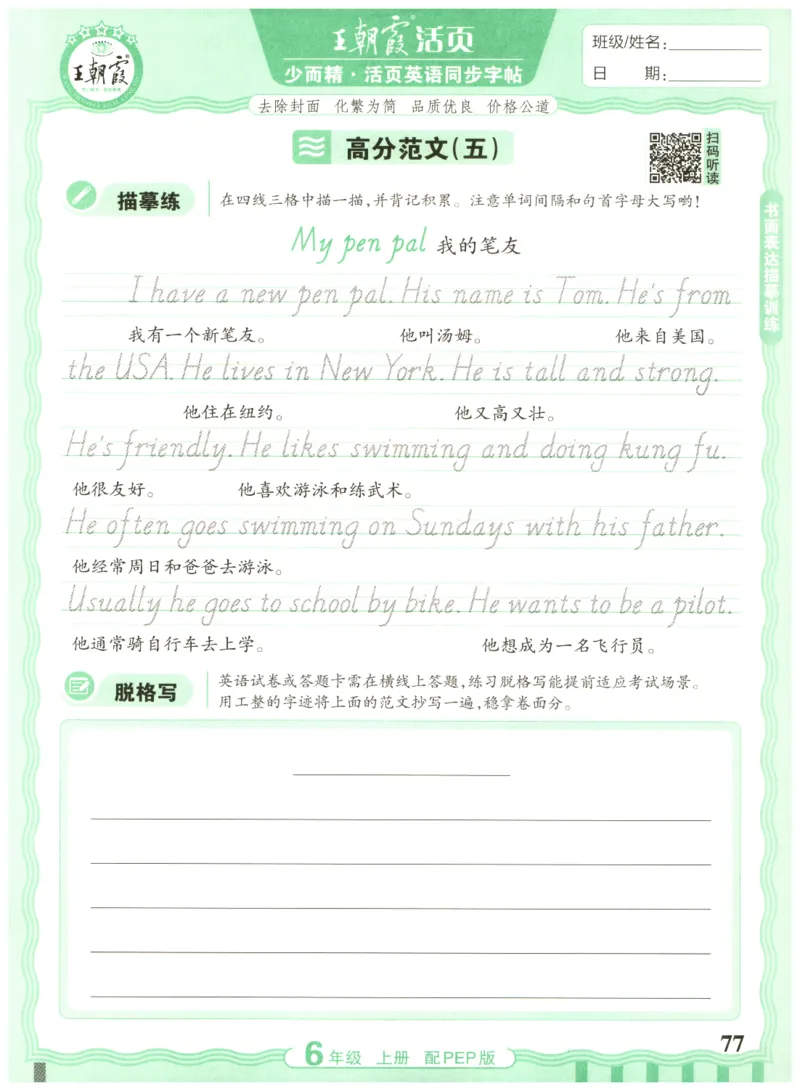 王朝霞
王朝霞®活页
少而精·活页英语同步字帖
班级/姓名:
日 期:
去除封面 化繁为简 品质优良 价格公道
高分范文(五)
扫码听读
描摹练
在四线三格中描一描,并背记积累。注意单词间隔和句首字母大写哟!
书面表达描摹训练
My pen pal 我的笔友
I have a new pen pal. His name is Tom. He's from
我有一个新笔友。 他叫汤姆。 他来自美国。
the USA. He lives in New York. He is tall and strong.
他住在纽约。 他又高又壮。
He's friendly. He likes swimming and doing kung fu.
他很友好。 他喜欢游泳和练武术。
He often goes swimming on Sundays with his father.
他经常周日和爸爸去游泳。
Usually he goes to school by bike. He wants to be a pilot.
他通常骑自行车去上学。 他想成为一名飞行员。
脱格写
英语试卷或答题卡需在横线上答题,练习脱格写能提前适应考试场景。
用工整的字迹将上面的范文抄写一遍,稳拿卷面分。
77
6年级 上册 配PEP版